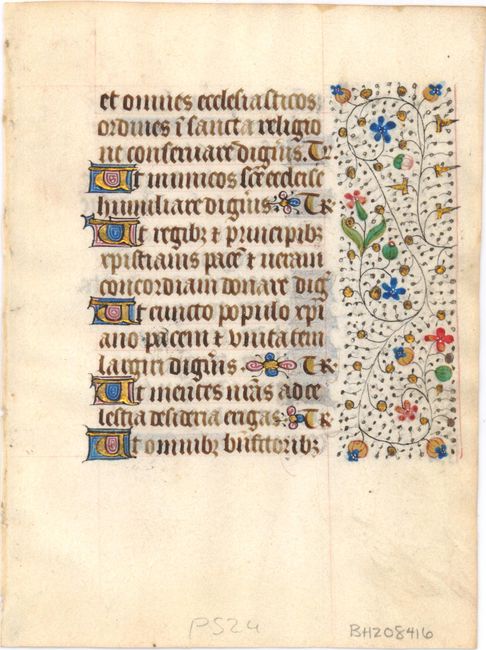 et omnes ecclesiasticos
ordines ĩ sancta religio
ne conseruare digñis. Te
Ut inimicos scẽ ecclesie
humiliare digñis. Te r
Ut regibȝ ⁊ principibȝ
xpistianis pacẽ ⁊ ueram
concordiam donare dig̃
Ut cuncto populo xpi
ano pacem ⁊ unitatem
largiri digñis. Te r
Ut mentes nr̃as ad ce
lestia desideria erigas. Te r
Ut omnibȝ bñfctoribȝ
PS24
BH208416